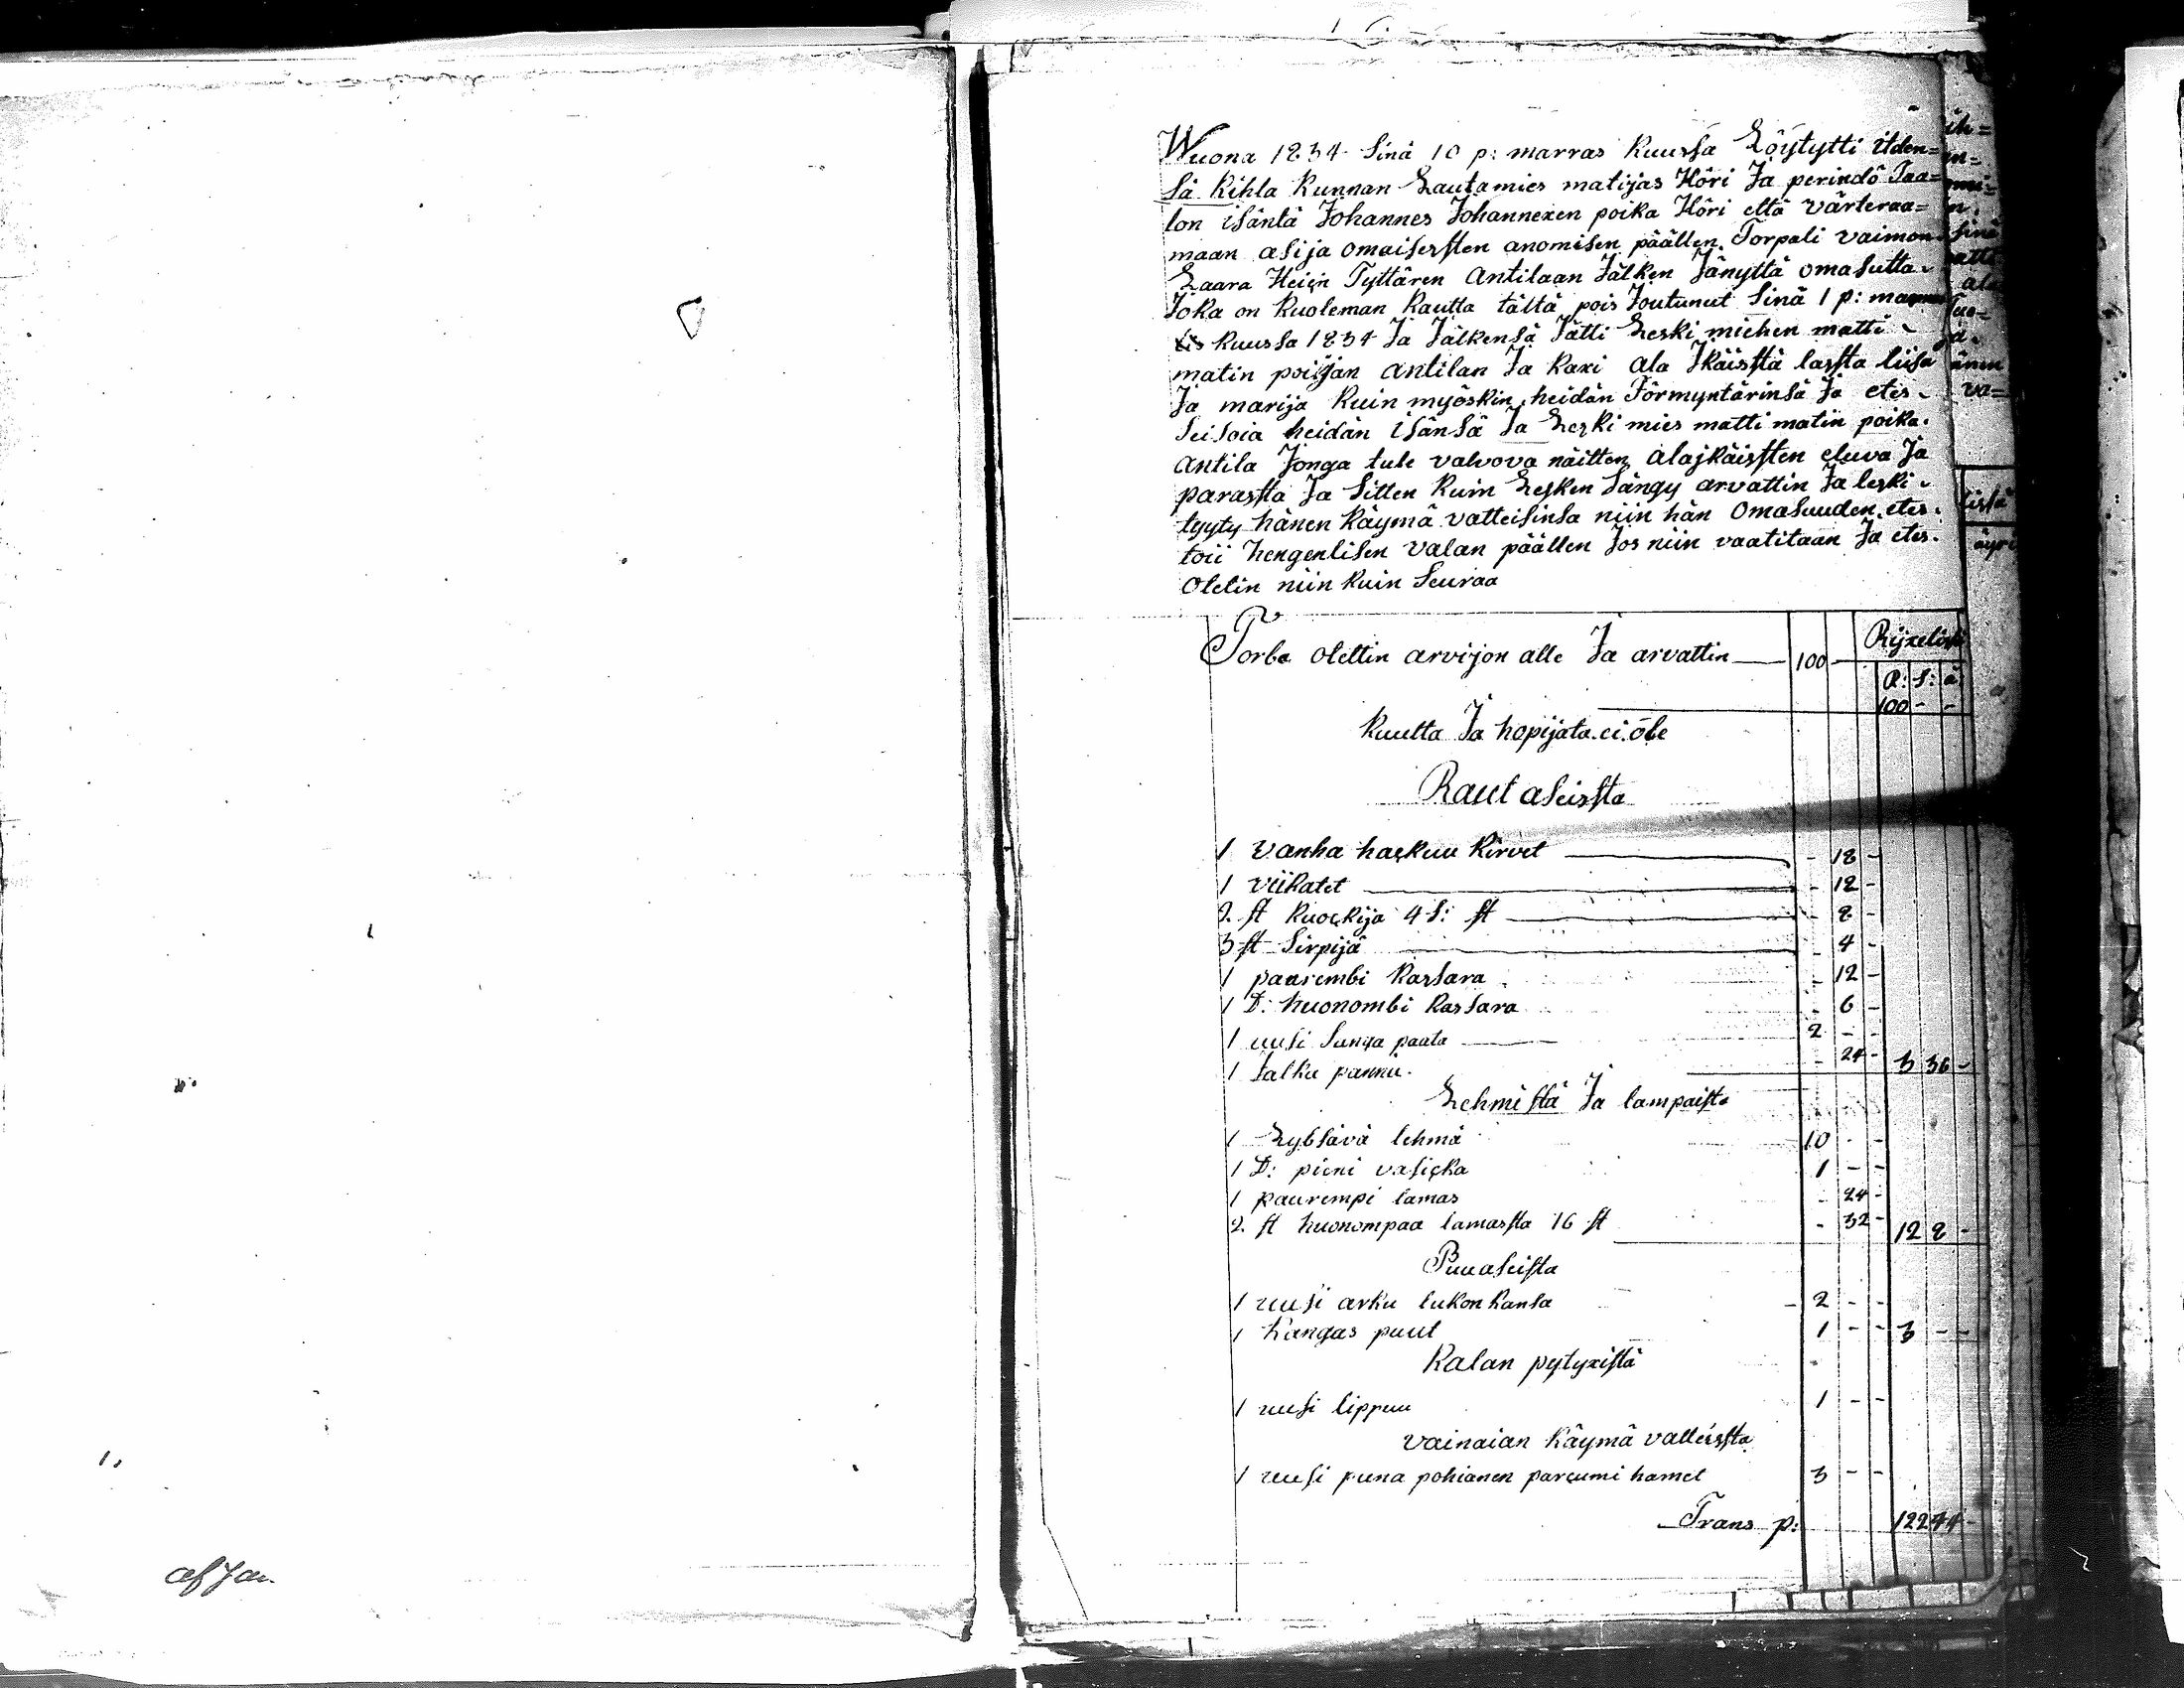 Wuona 1834 Sinä 10 p: marras kuussa Löytytti itden=
sä kihla kunnan Lautamies matijas Höri Ja perindö Taa=
lon isäntä Johannes Johannexen poika Höri että värteraa=
maan asija omaisersten anomisen päällen Torpali vaimon
Saara Heiin Tyttären Antilaan Jälken Jänyttä omasutta
Joka on kuoleman kautta tältä pois Joutunut Sinä 1 p:
kuussa 1834 Ja Jälkensä Jätti Leski miehen matti
matin poijan Antilan Ja kaxi ala Jkäistä lasta liisa
Ja marija kuin myöskin heidän Förmyntärinsä Ja etes
seisoia heidän isänsä Ja Leski mies matti matin poika
Antila Jonga tule valvova näitten alajkäisten eluva Ja
parasta Ja sitten kuin Lesken Sängy arvattin Ja leski
tyyty hänen käymä vatteisinsa niin hän omasuuden etes
toii hengenlisen valan päällen Jos niin vaatitaan Ja etes
Oletin niin kuin seuraa
Torba olettin arvijon alle Ja arvattin 100 -
R: S: ä
100 - -
Kuulta Ja hopijata ei ole
Raut aseista
1 vanha hackuu kirvet - 18 -
1 viikatet - 12 -
2 st kuockija 4 s: st - 8 -
3 st Sirpijä - 4 -
1 paarembi kassara - 12 -
1 D: huonombi kassara - 6 -
1 uusi Sanga paata 2 - -
1 Jalka pannu - 24 - 3 36 -
Lehmistä Ja lampaista
1 Lybsävä lehmä 10 - -
1 D: pieni vasicka 1 - -
1 paurempi lamas - 24 -
2 st huonompaa lamasta 16 st - 32 - 12 8 -
Puuaseista
1 uusi arku lukon kansa 2 - -
1 Kangas puut 1 - - 3 - -
Kalan pytyxistä
1 uusi lippuu 1 - -
vainaian käymä vatteissta
1 uusi puna pohianen parcumi hamet 3 - -
Trans p: 122 44 -